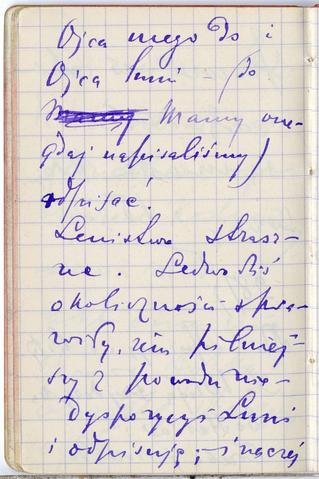 Ojca mego do i
Ojca Luni – (do
Mamy Mamy one-
gdaj napisaliśmy)
odpisać.
Lenistwo strasz-
ne. Ledwo dziś
okoliczności spra-
wiły, żem pilniej-
szy z powodu nie-
dyspozycyi Luni
i odpisuję, – inaczej